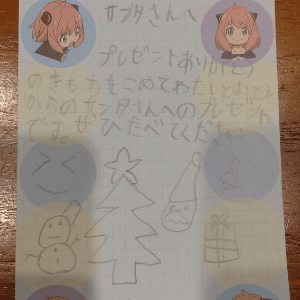 サンタさんへ
プレゼントありがとう
のきもちをこめてわたしとおとうと
からのサンタさんへのプレゼント
です。ぜひたべてください